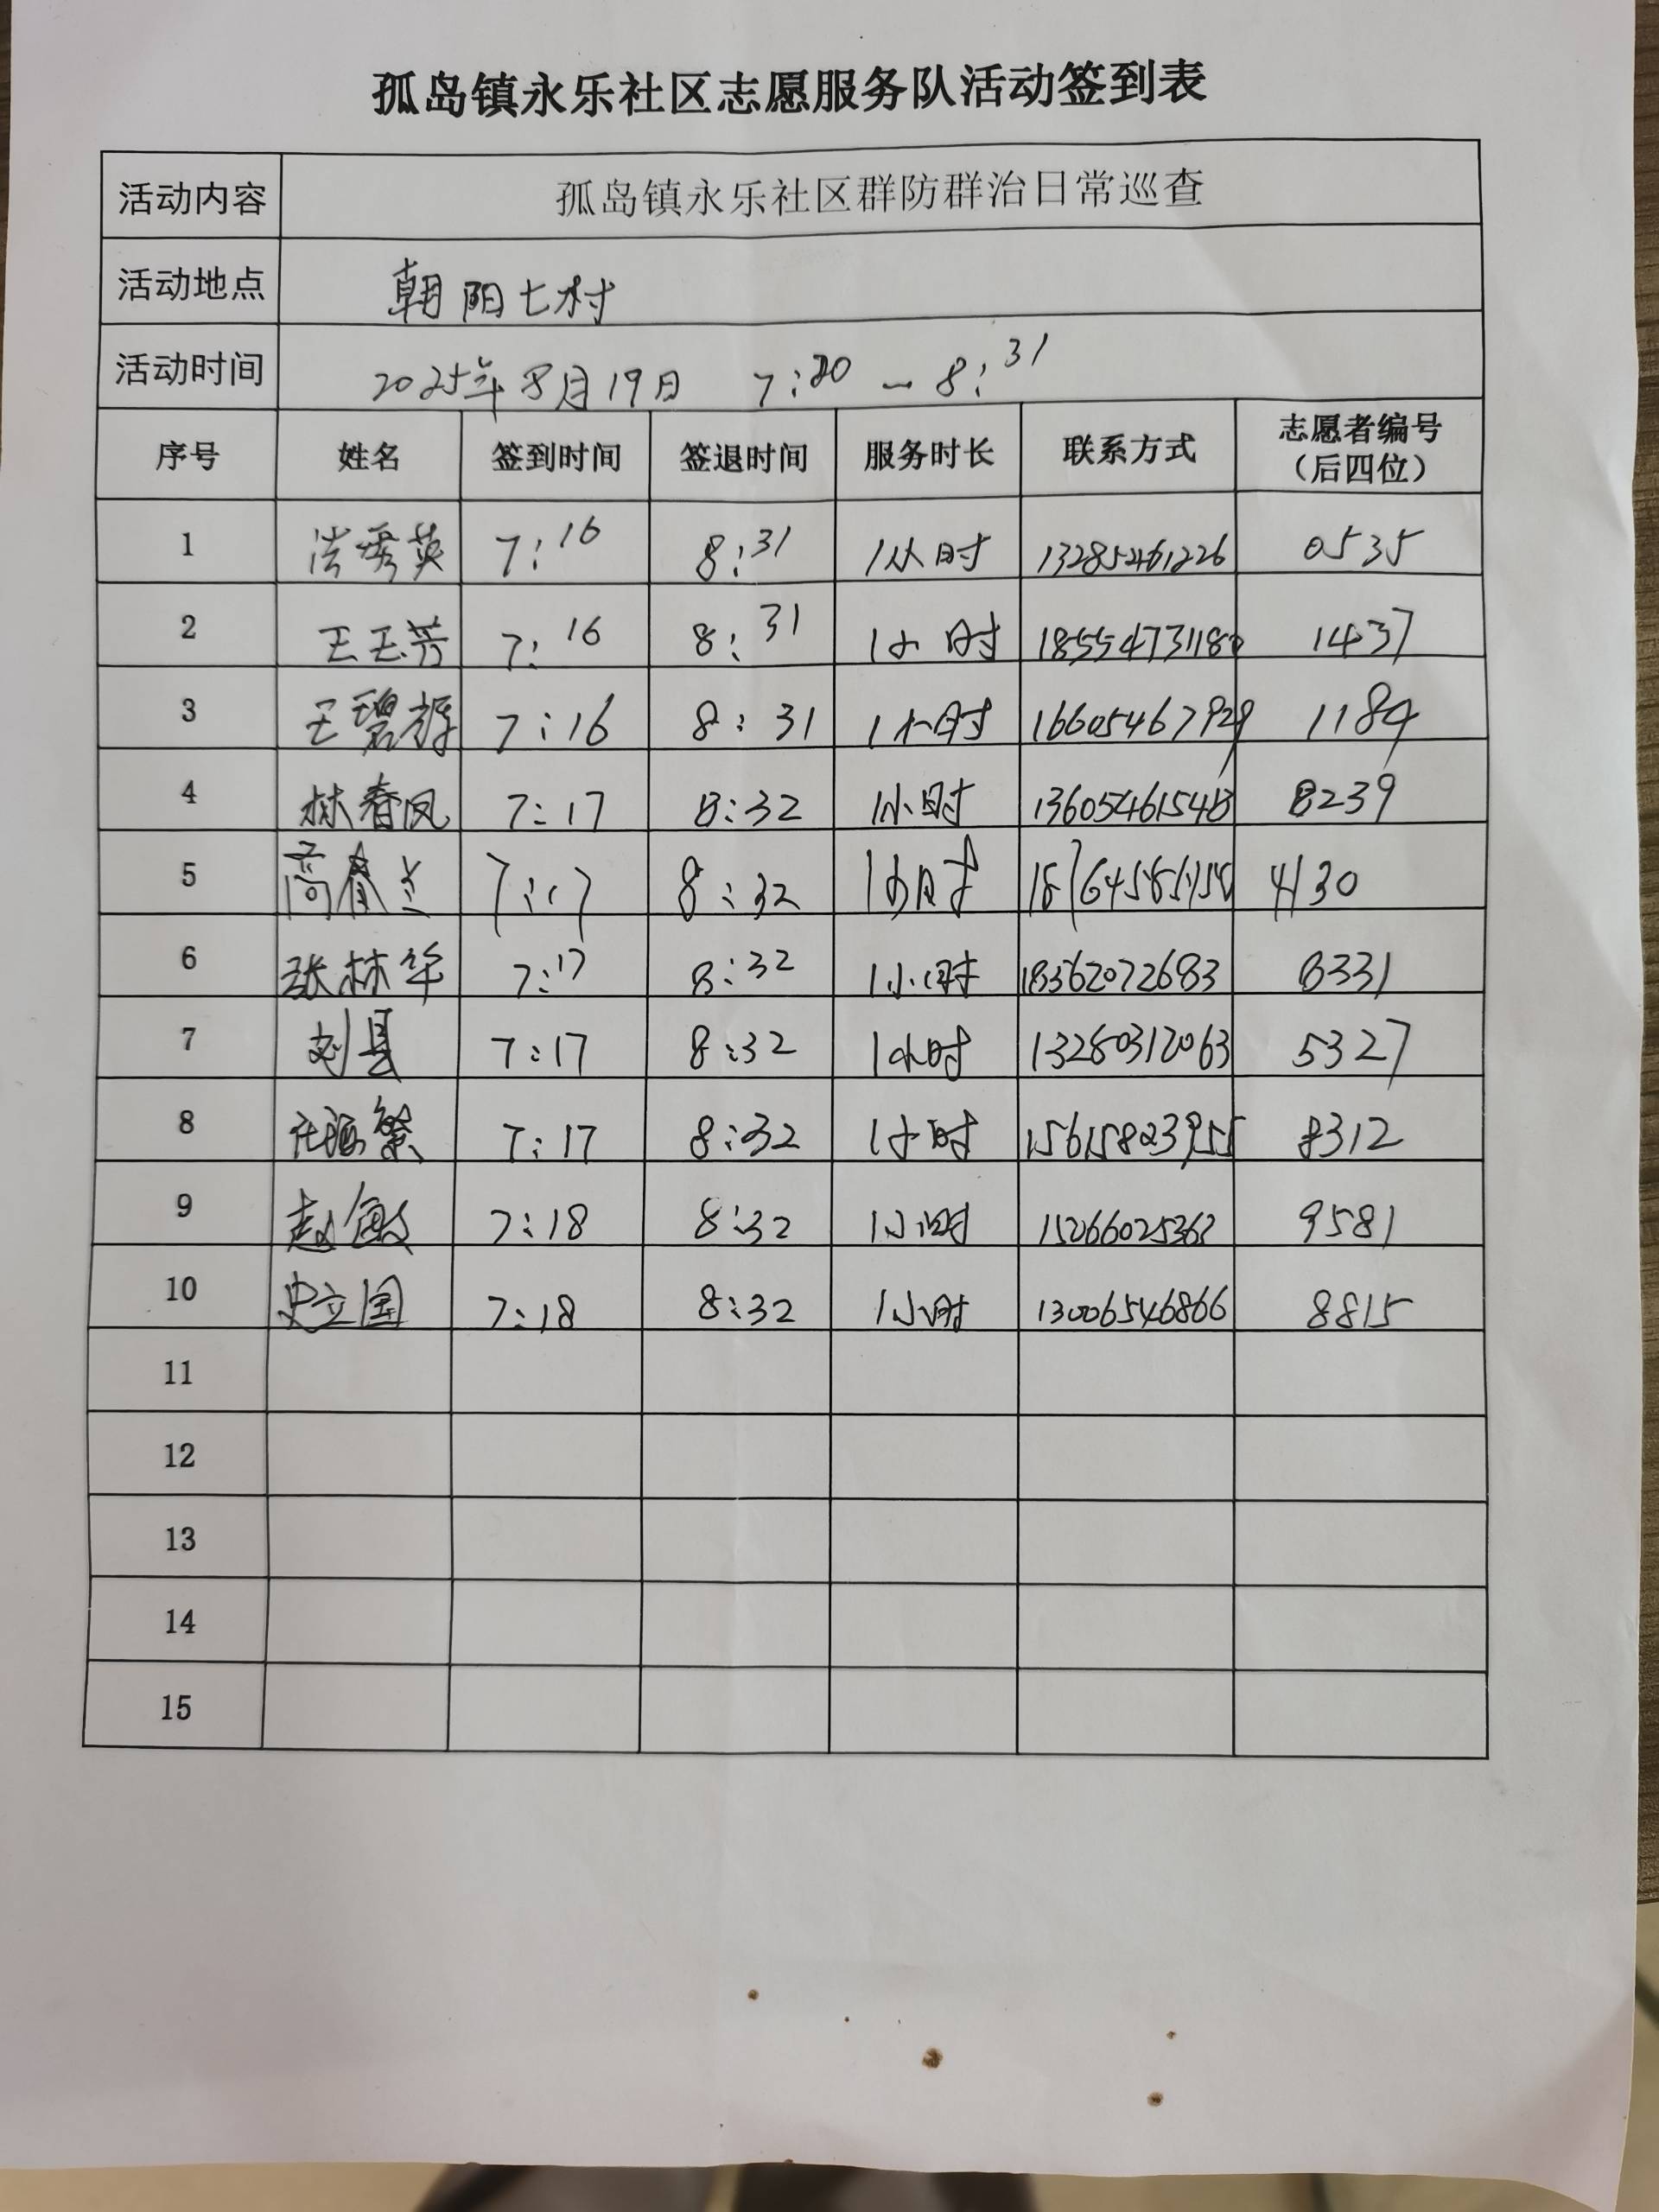 孤岛镇永乐社区志愿服务队活动签到表
活动内容 孤岛镇永乐社区群防群治日常巡查
活动地点 朝阳七村
活动时间 2025年8月19日 7:20 - 8:31
序号 姓名 签到时间 签退时间 服务时长 联系方式 志愿者编号（后四位）
1 秀英 7:16 8:31 1小时 13285461226 0535
2 王玉芳 7:16 8:31 1小时 18554731180 1437
3 王碧辉 7:16 8:31 1小时 16605467929 1184
4 林春凤 7:17 8:32 1小时 13605461548 8239
5 高春兰 7:17 8:32 1小时 4130
6 张林华 7:17 8:32 1小时 18362072683 8331
7 刘县 7:17 8:32 1小时 13280312063 5327
8 7:17 8:32 1小时 15615823955 8312
9 赵敏 7:18 8:32 1小时 15266025363 9581
10 史立国 7:18 8:32 1小时 13006546866 8815
11
12
13
14
15